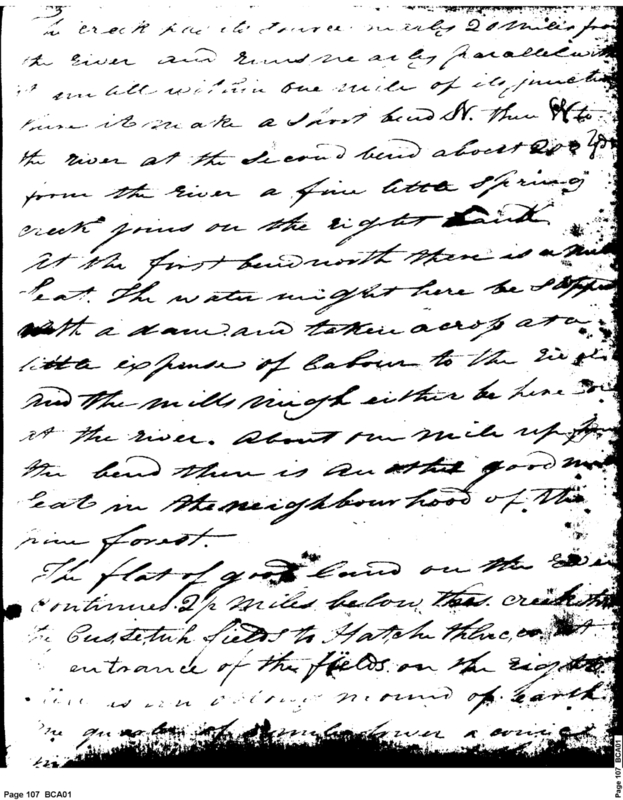 creek has its source nearly 20 miles from
the river and runs nearly parallel with
it untill within one mile of its junction
it make a short bend N. then W to
the river at the second bend about
from the river a fine little spring
creek joins on the right bank
At the first bend north there is a mill
Seat. The water might here be stopped
with a dam and taken across at a
little expense of labour to the river
and the mills migh either be here or
at the river. About one mile up from
the bend there is another good mill
Seat in the neighbourhood of the
pine forest.
The flat of good land on the river
continues 2½ miles below this creek thro
the Cussetuh fields to Hatche thluc,co. At
entrance of the fields on the right
is an oblong mound of earth
one quarter of a mile lower a conic
Page 107 BCA01
Page 107 BCA01